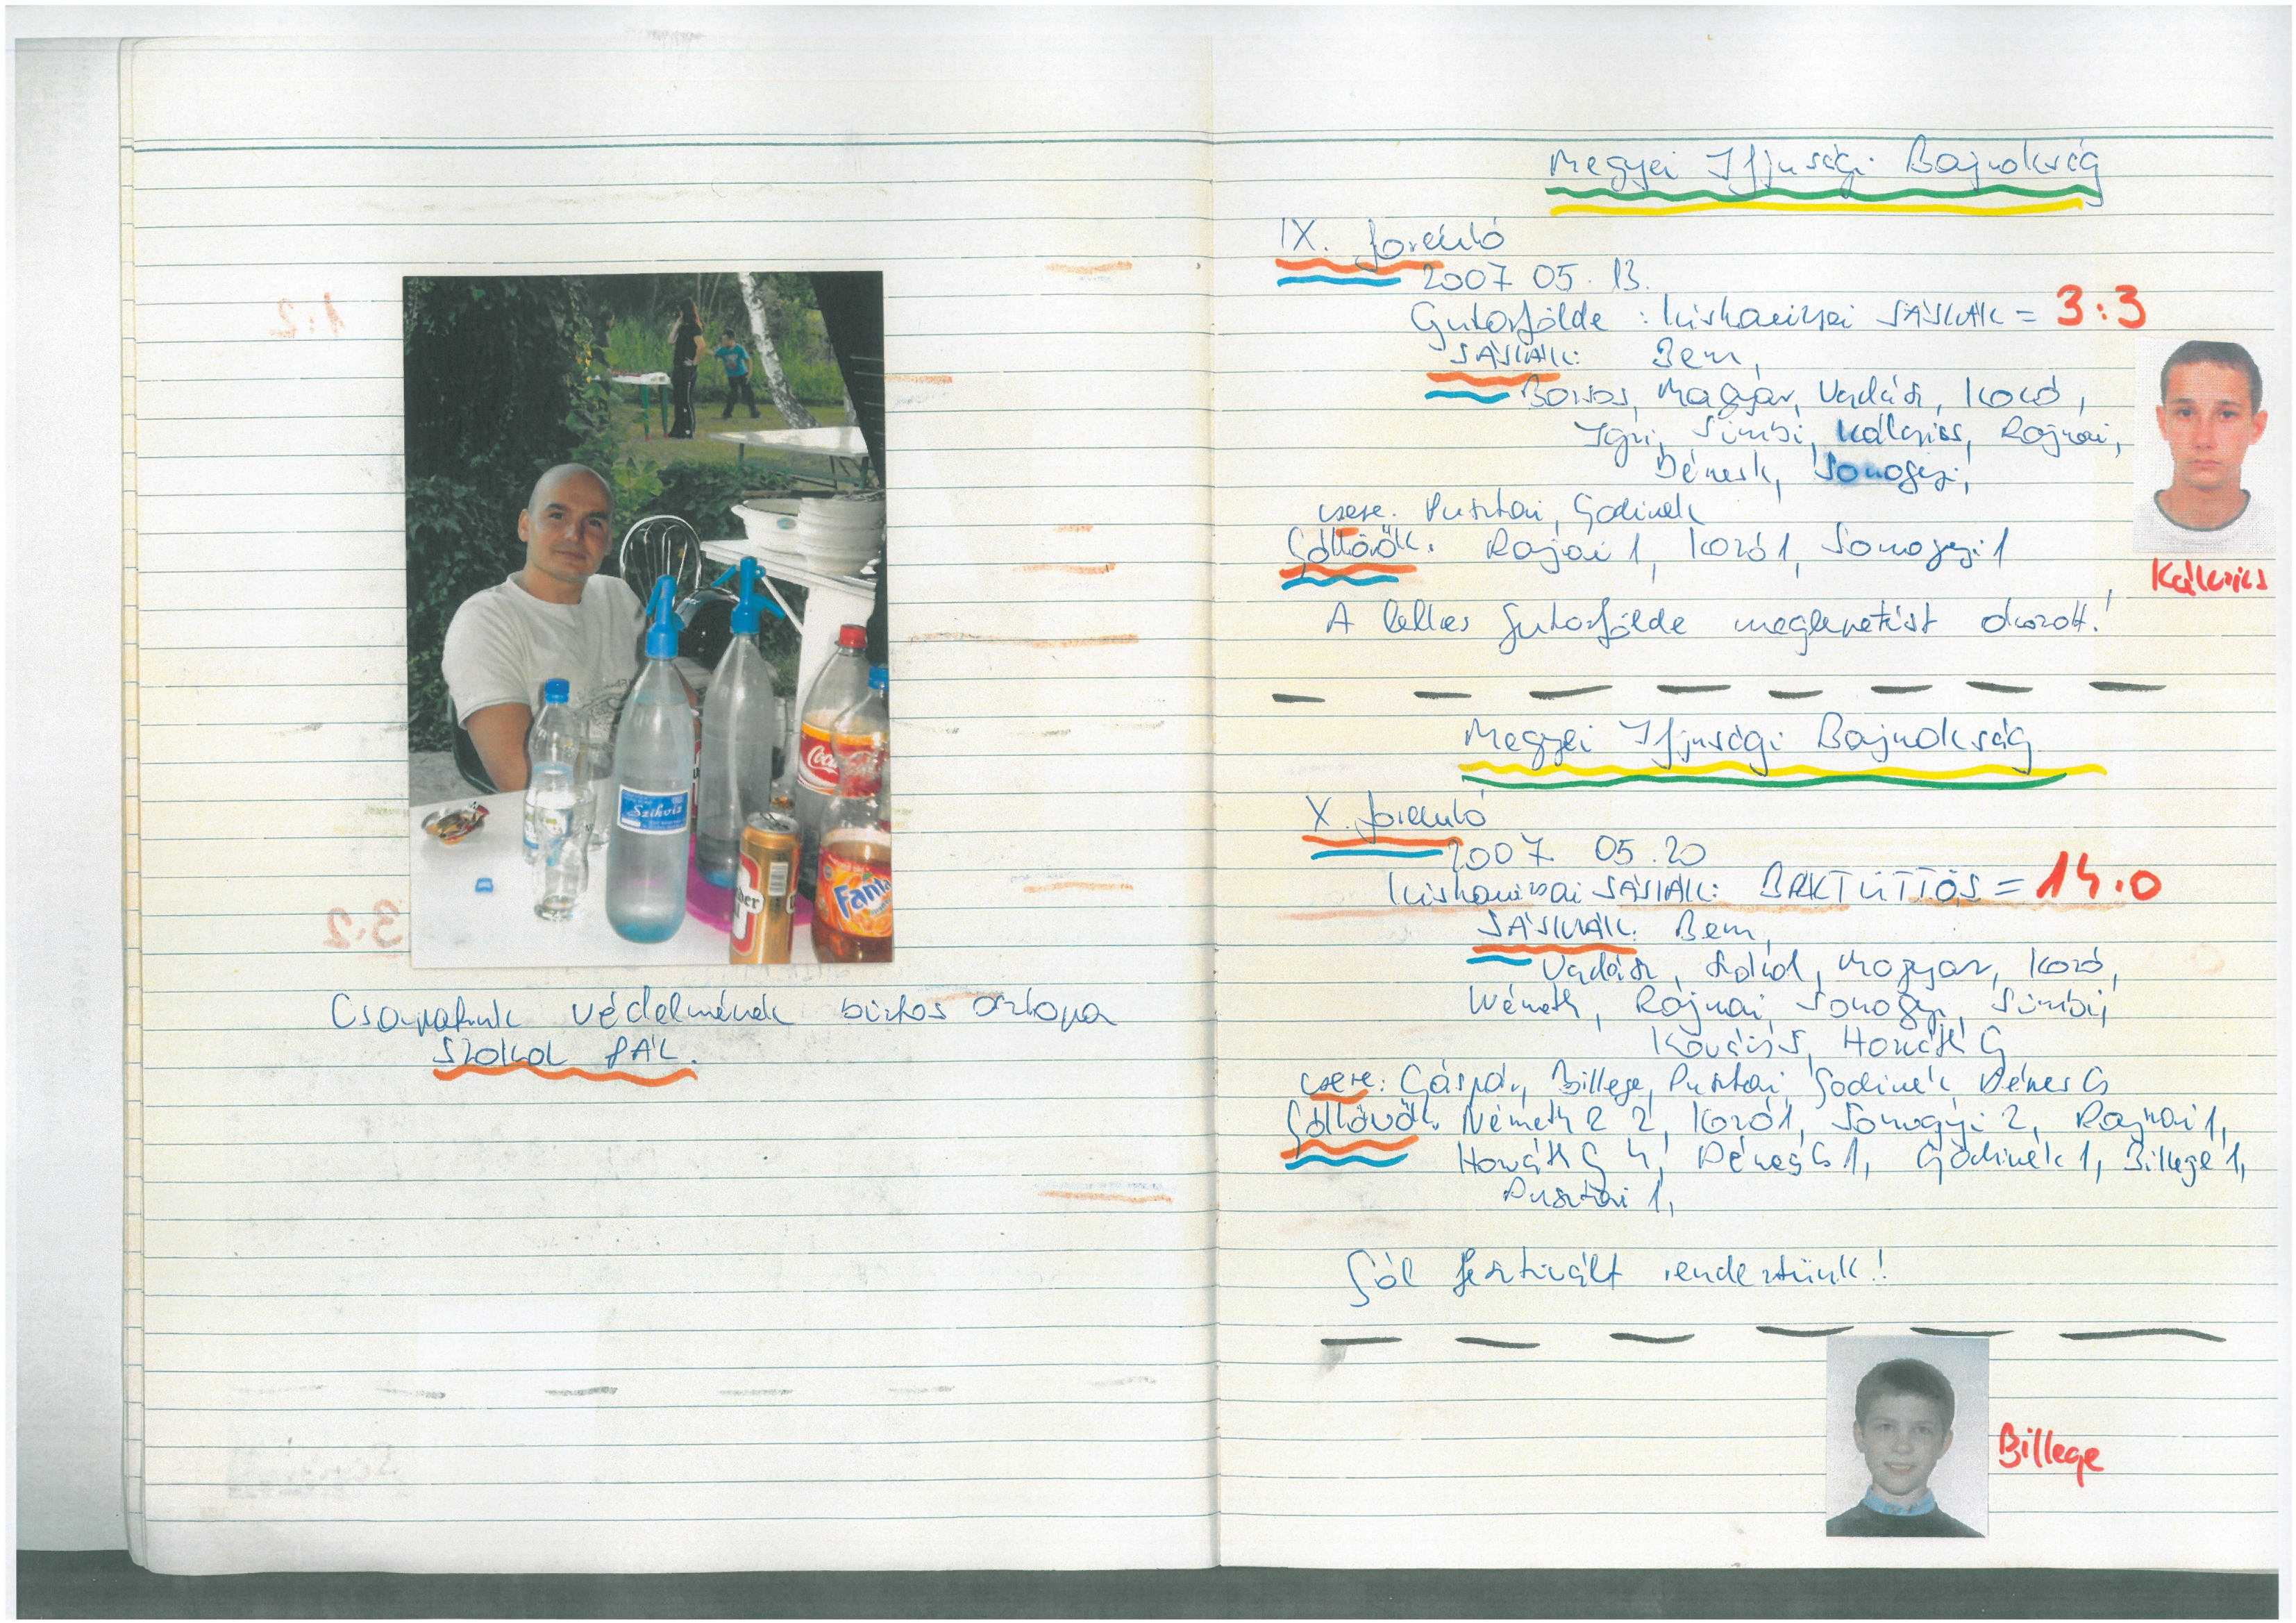 Csapatunk védelmének biztos oszlopa
SZOKOL PÁL.
Szikvíz
Coca
Fanta
Megyei Ifjusági Bajnokság
IX. forduló
2007 05. 13.
Gutorfölde : Kiskanizsai SÁSKÁK = 3:3
SÁSKÁK: Bem,
Boros, Magyar, Vadász, Kozó,
Simbi, Kálovics, Rajnai,
Somogyi,
csere. Pusztai, Godinek
Góllövők. Rajnai 1, Kozó 1, Somogyi 1
Kálovics
A lelkes Gutorfölde meglepetést okozott!
Megyei Ifjusági Bajnokság
X. forduló
2007. 05.20
Kiskanizsai SÁSKÁK: BAKTÜTTÖS = 14:0
SÁSKÁK: Bem,
Vadász, Szokol, Magyar, Kozó,
Németh, Rajnai, Somogyi, Simbi,
Kovács, Horváth G
csere: Gáspár, Billege, Pusztai, Godinek, Dénes G
Góllövők. Németh R 2, Kozó 1, Somogyi 2, Rajnai 1,
Horváth G 4, Dénes G 1, Godinek 1, Billege 1,
Pusztai 1,
Gól fesztivált rendeztünk!
Billege